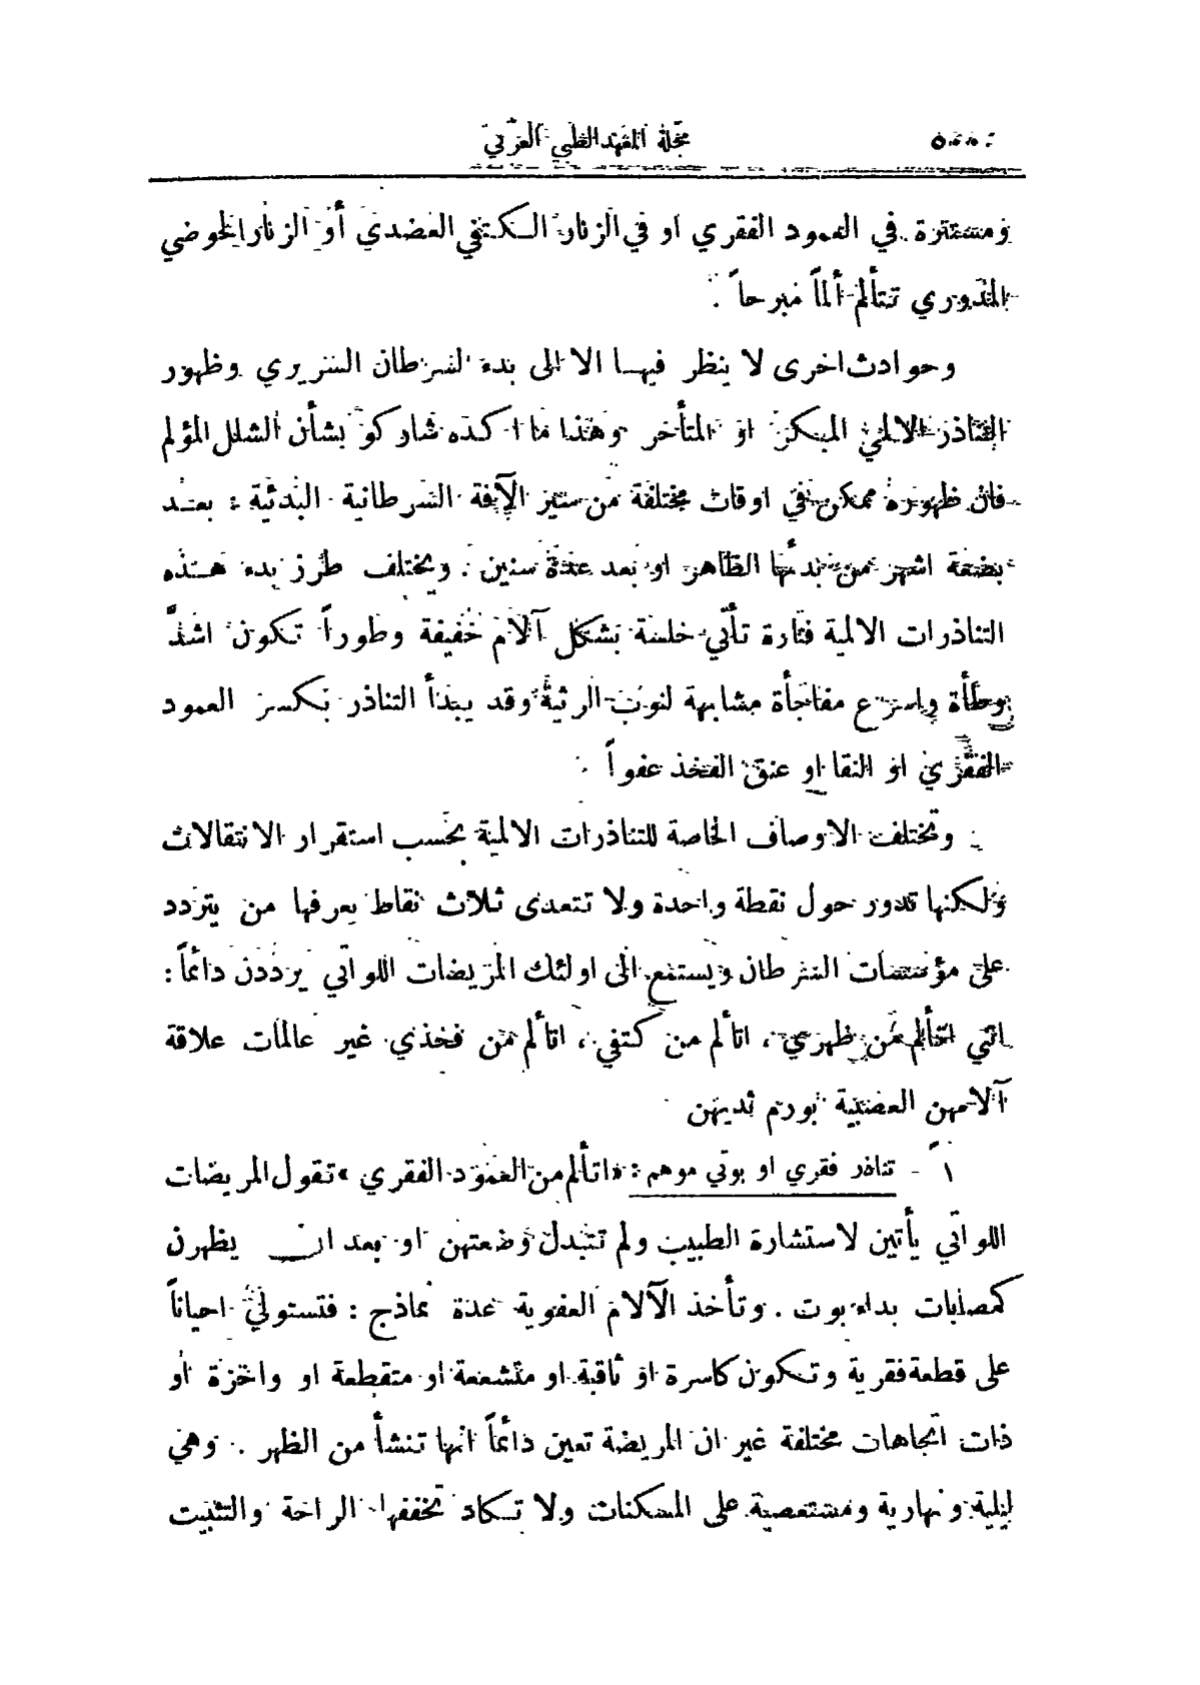 مجلة المعهد الطبي العربي
ومستترة في العمود الفقري او في الزنار الكتفي العضدي أو الزنار الحوضي
المدوري تتألم ألماً مبرحاً .
وحوادث اخرى لا ينظر فيها الا الى بدء السرطان السريري وظهور
التناذر الالمي المبكر او المتأخر وهذا ما اكده شاركو بشأن الشلل المؤلم
فان ظهوره ممكن في اوقات مختلفة من سير الآفة السرطانية البدئية : بعد
بضعة اشهر من بدئها الظاهر او بعد عدة سنين . ويختلف طرز بدء هذه
التناذرات الالمية فتارة تأتي خلسة بشكل آلام خفيفة وطوراً تكون اشدَّ
وطأة واسرع مفاجأة مشابهة لنوب الرثية وقد يبتدأ التناذر بكسر العمود
الفقري او النقا او عنق الفخذ عفواً .
وتختلف الاوصاف الخاصة للتناذرات الالمية بحسب استقرار الانتقالات
ولكنها تدور حول نقطة واحدة ولا تتعدى ثلاث نقاط يعرفها من يتردد
على مؤسسات السرطان ويستمع الى اولئك المريضات اللواتي يرددن دائماً :
انني اتألم من ظهري ، اتألم من كتفي ، اتألم من فخذي غير عالمات علاقة
آلامهن العصبية بورم ثديهن
١ً - تناذر فقري او بوتي موهم : «اتألم من العمود الفقري» تقول المريضات
اللواتي يأتين لاستشارة الطبيب ولم تتبدل وضعتهن او بعد ان يظهرن
كمصابات بداء بوت . وتأخذ الآلام العفوية عدة نماذج : فتستولي احياناً
على قطعة فقرية وتكون كاسرة او ثاقبة او متشععة او متقطعة او واخزة او
ذات اتجاهات مختلفة غير ان المريضة تعين دائماً انها تنشأ من الظهر . وهي
ليلية ونهارية ومستعصية على المسكنات ولا تكاد تخففها الراحة والتثبيت